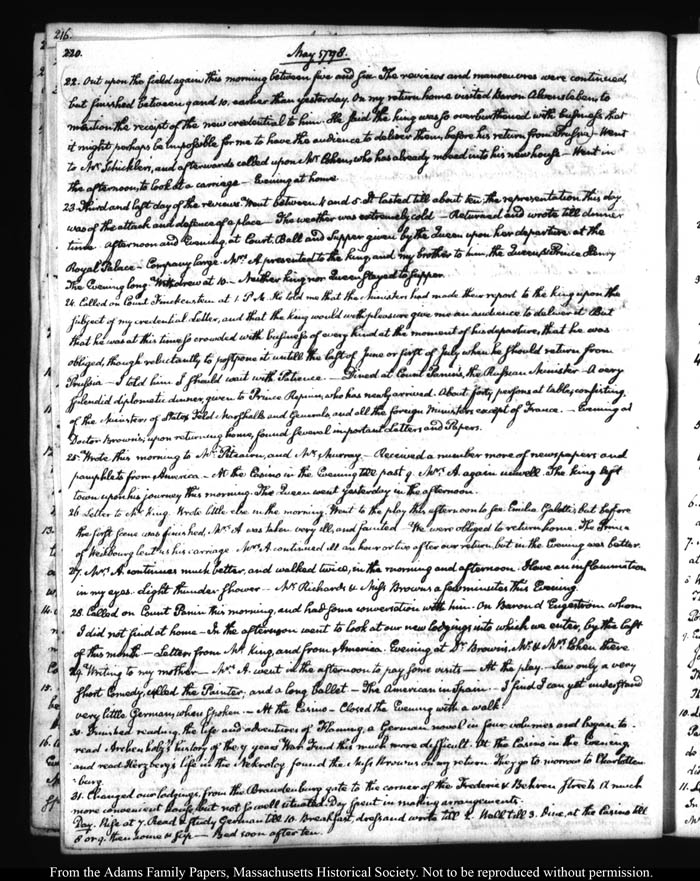 216.
220. May 1798.
22. Out upon the field again this morning between five and six. The reviews and manoeuvres were continued,
but finished between 9 and 10, earlier than yesterday. On my return home visited Baron Alvensleben, to
mention the receipt of the new credential to him. He said the king was so overburthened with business that
it might perhaps be impossible for me to have the audience to deliver them, before his return from Prussia. Went
to Mr. Schickler's, and afterwards called upon Mr. Cohen, who has already moved into his new house — Went in
the afternoon, to look at a carriage — Evening at home.
23. Third and last day of the reviews. Went between 4 and 5. It lasted till about ten. The representation this day
was of the attack and defence of a place — The weather was extremely cold — Returned and wrote till dinner
time. afternoon and Evening, at Court. Ball and Supper given by the Queen upon her departure at the
Royal Palace — Company large. Mrs. A presented to the king, and my brother to him, the Queen & Prince Henry
The Evening long. Withdrew at 10 — Neither king nor Queen stayed to supper.
24. Called on Count Finckenstein at 1. P.M. He told me that the Ministers had made their report to the king upon the
subject of my credential Letter, and that the king would with pleasure give me an audience to deliver it. But
that he was at this time so crowded with business of every kind at the moment of his departure, that he was
obliged, though reluctantly to postpone it untill the last of June or first of July when he should return from
Prussia — I told him I should wait with Patience. — Dined at Count Panin's, the Russian Minister — A very
splendid diplomatic dinner, given to Prince Repnin, who has newly arrived. About forty persons at table, consisting
of the Ministers of State, Field Marshalls and Generals, and all the foreign Ministers except of France. — Evening at
Doctor Brown's; upon returning home, found several important Letters and Papers.
25. Wrote this morning to Mr. Pitcairn, and Mr. Murray — Received a number more of newspapers and
pamphlets from America — At the Casino in the Evening till past 9. Mrs. A. again unwell. The king left
town upon his journey this morning. The Queen went yesterday in the afternoon.
26 Letter to Mr. King. Wrote little else in the morning. Went to the play this afternoon to see Emilia Galotti; but before
the first scene was finished, Mrs. A was taken very ill, and fainted — We were obliged to return home. The Prince
of Weilbourg lent us his carriage Mrs. A continued ill an hour or two after our return but in the Evening was better.
27. Mrs. A. continues much better, and walked twice, in the morning and afternoon. Have an inflammation
in my eyes. Slight thunder shower. — Mr. Richards & Miss Browns a few minutes this Evening.
28. Called on Count Panin this morning, and had some conversation with him. On Baron d'Engeström whom
I did not find at home — In the afternoon went to look at our new lodgings into which we enter, by the last
of this month — Letters from Mr. King, and from America. Evening at Dr. Brown's, Mr. & Mrs. Cohen there
29. Writing to my mother — Mrs. A. went in the afternoon to pay some visits — At the play. Saw only a very
short Comedy, called the Painter, and a long ballet — The American in Spain. I find I can yet understand
very little German, when spoken. — At the Casino — Closed the Evening with a walk.
30. Finished reading the life and adventures of Fleming, a German novel in four volumes and began to
read Archenholz's history of the 7 years War. Find this much more difficult. At the Casino in the Evening
and read Herzberg's life in the Nekrolog found the Miss Browns on my return. They go to morrow to Charlotten
burg.
31. Changed our lodgings, from the Brandenburg gate to the corner of the Frederic & Behren streets A much
more convenient house, but not so well situated. Day spent in making arrangements.
Day. Rise at 7. Read & study German till 10. Breakfast, dress and write till 2. Walk till 3. Dine, at the Casino till
8 or 9. then home & sup — Bed soon after ten.
From the Adams Family Papers, Massachusetts Historical Society. Not to be reproduced without permission.